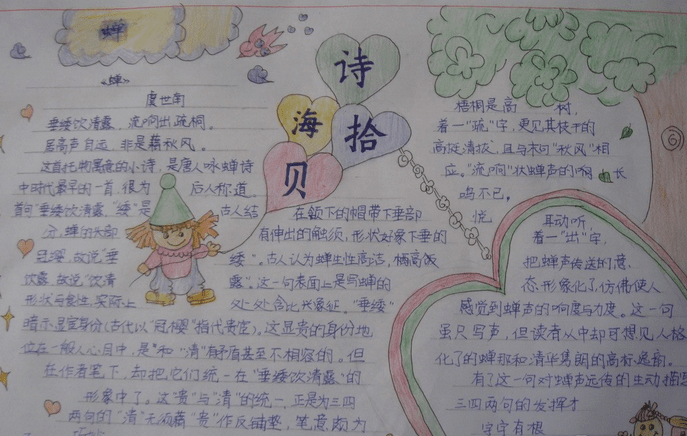 蝉
诗
海 拾
贝
《蝉》
虞世南
垂緌饮清露,流响出疏桐。
居高声自远,非是藉秋风。
这首托物寓意的小诗,是唐人咏蝉诗
中时代最早的一首,很为 后人称道
首句"垂緌饮清露,"緌"是 古人结
在颔下的帽带下垂部
分,蝉的头部 有伸出的触须,形状好象下垂的
冠缨,故说"垂 緌"。古人认为蝉生性高洁,栖高饮
饮露,故说"饮清 露"。这一句表面上是写蝉的
形状与食性,实际上 处处含比兴象征,"垂緌"
暗示显宦身份(古代以"冠缨"指代贵宦)。这显贵的身份地
位在一般人心目中,是 和"清"有矛盾甚至不相容的。但
在作者笔下,却把它们统一在"垂緌饮清露"的
形象中了。这"贵"与"清"的统一,正是为三四
两句的"清"无须藉"贵"作反铺垫,笔意颇为
梧桐是高 树,
着一"疏"字,更见其枝干的
高挺清拔,且与末句"秋风"相
应。"流响"状蝉声的 长
鸣不已,
悦 耳动听,
着一"出"字,
把蝉声传送的意
态形象化了,仿佛使人
感觉到蝉声的响度与力度。这一句
虽只写声,但读者从中却可想见人格
化了的蝉那和清华隽朗的高标逸韵。
有了这一句对蝉声远传的生动描
三四两句的发挥才
字字有根